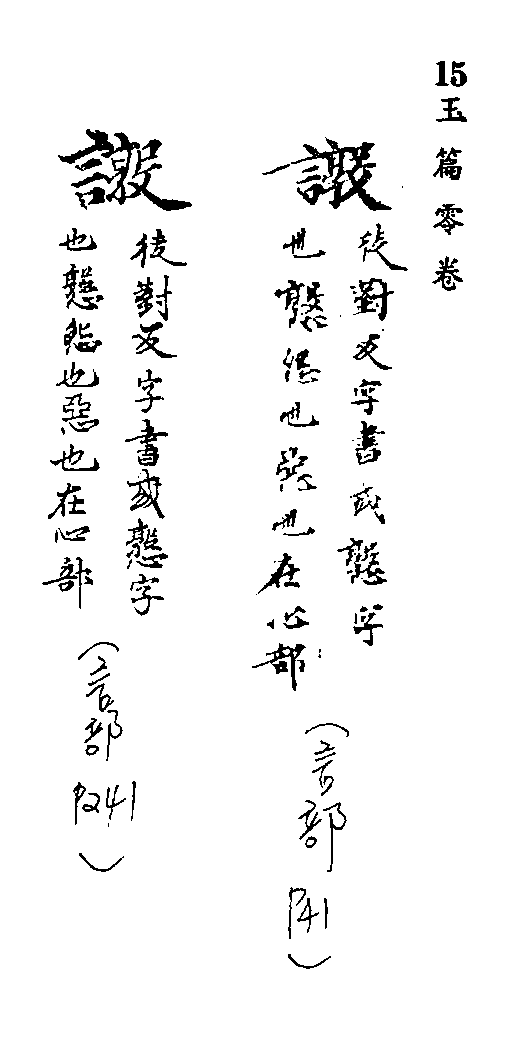 15玉篇零卷
譈
徒對反字書或憝字
也憝怨也惡也在心部
(言部 P41)
譈
徒對反字書或憝字
也憝怨也惡也在心部
(言部 P241)